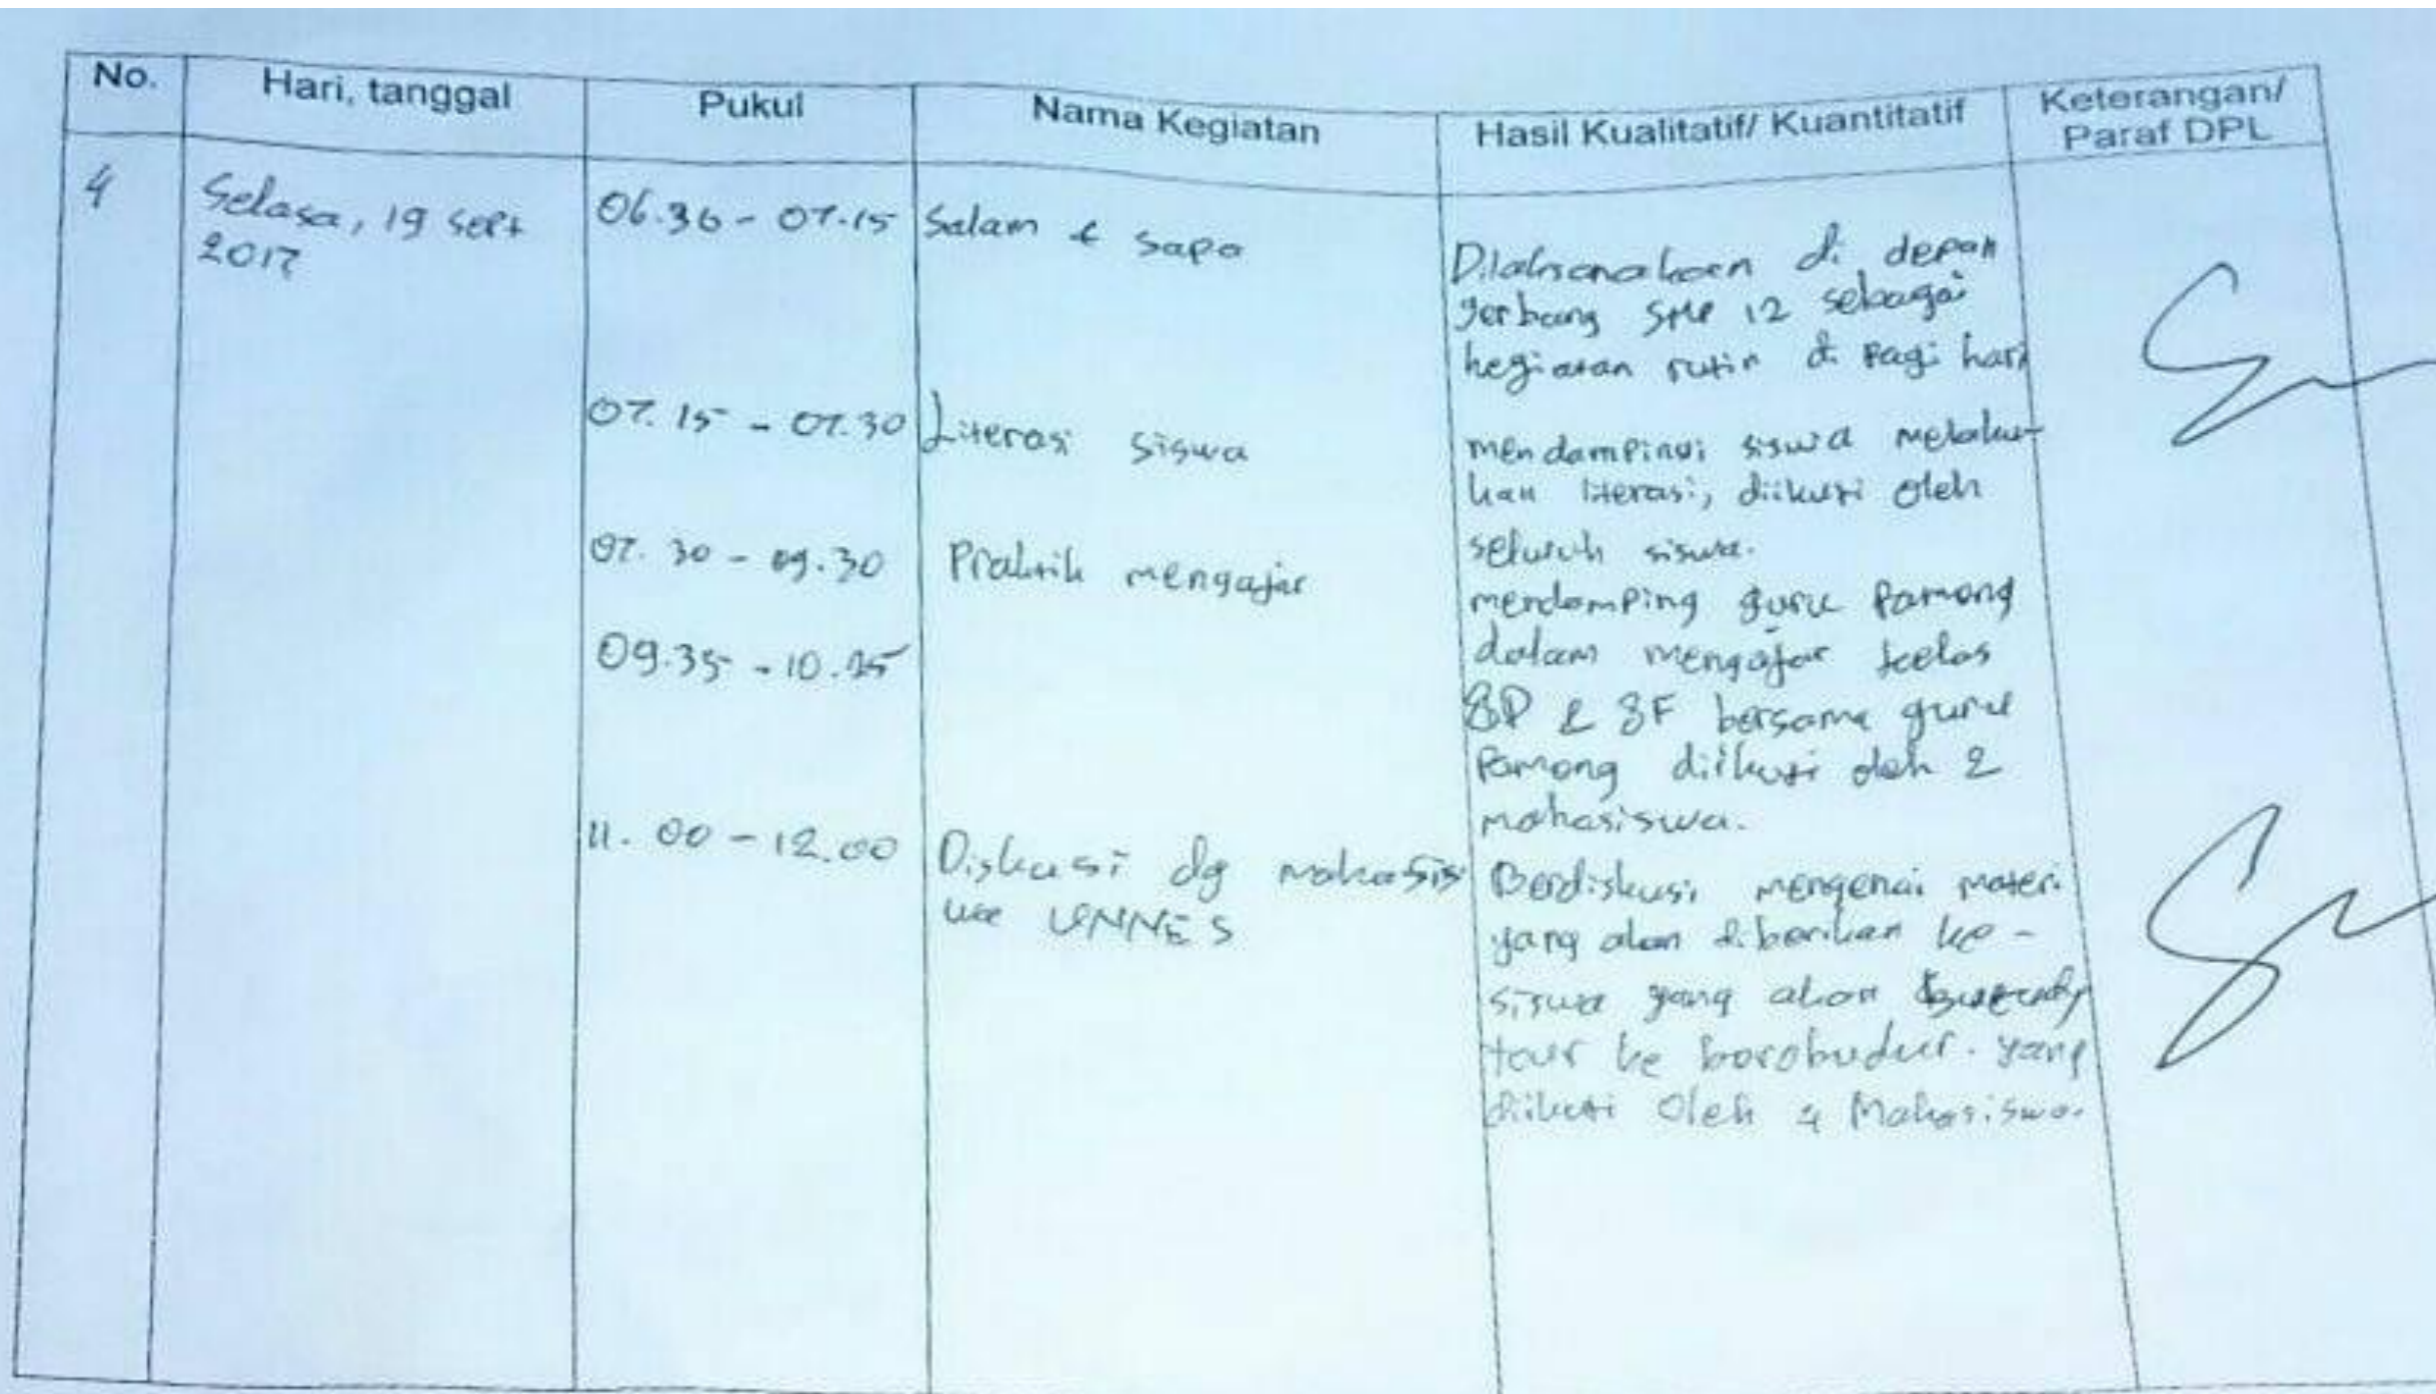 No.
Hari, tanggal
Pukul
Nama Kegiatan
Hasil Kualitatif/ Kuantitatif
Keterangan/
Paraf DPL
4
Selasa, 19 Sept
2017
06.30 - 07.15
Salam & Sapa
Dilaksanakaen di depan
gerbang SMP 12 sebagai
kegiatan rutin di Pagi hari
07.15 - 07.30
Literasi siswa
mendampingi siswa melaku-
kan literasi, diikuti oleh
seluruh siswa.
07.30 - 09.30
Praktik mengajar
mendamping guru Pamong
09.35 - 10.
dalam mengajar kelas
8D & 8F bersama guru
Pamong diikuti oleh 2
mahasiswa.
11.00 - 12.00
Diskusi dg mahasis
wa UNNES
Berdiskusi mengenai materi
yang akan diberikan ke -
siswa yang akan
tour ke borobudur. yang
diikuti Oleh 4 Mahasiswa.